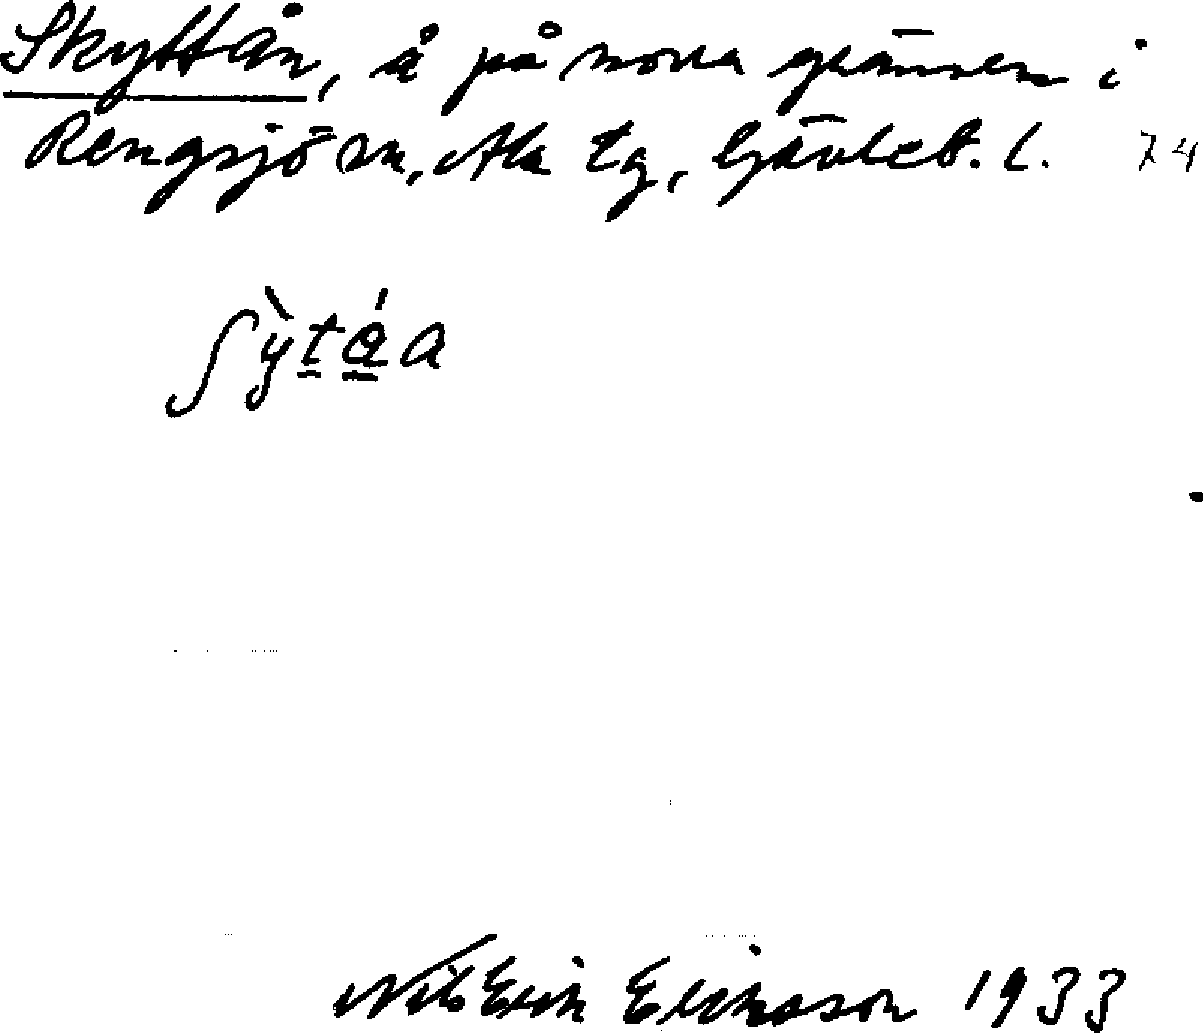 Skyttån, å på norra gränsen i
Rengsjö sn, Ala tg, Gävleb. l. 74
ʃỳt̲ǻ̲a
Nils Erik Eriksson 1933